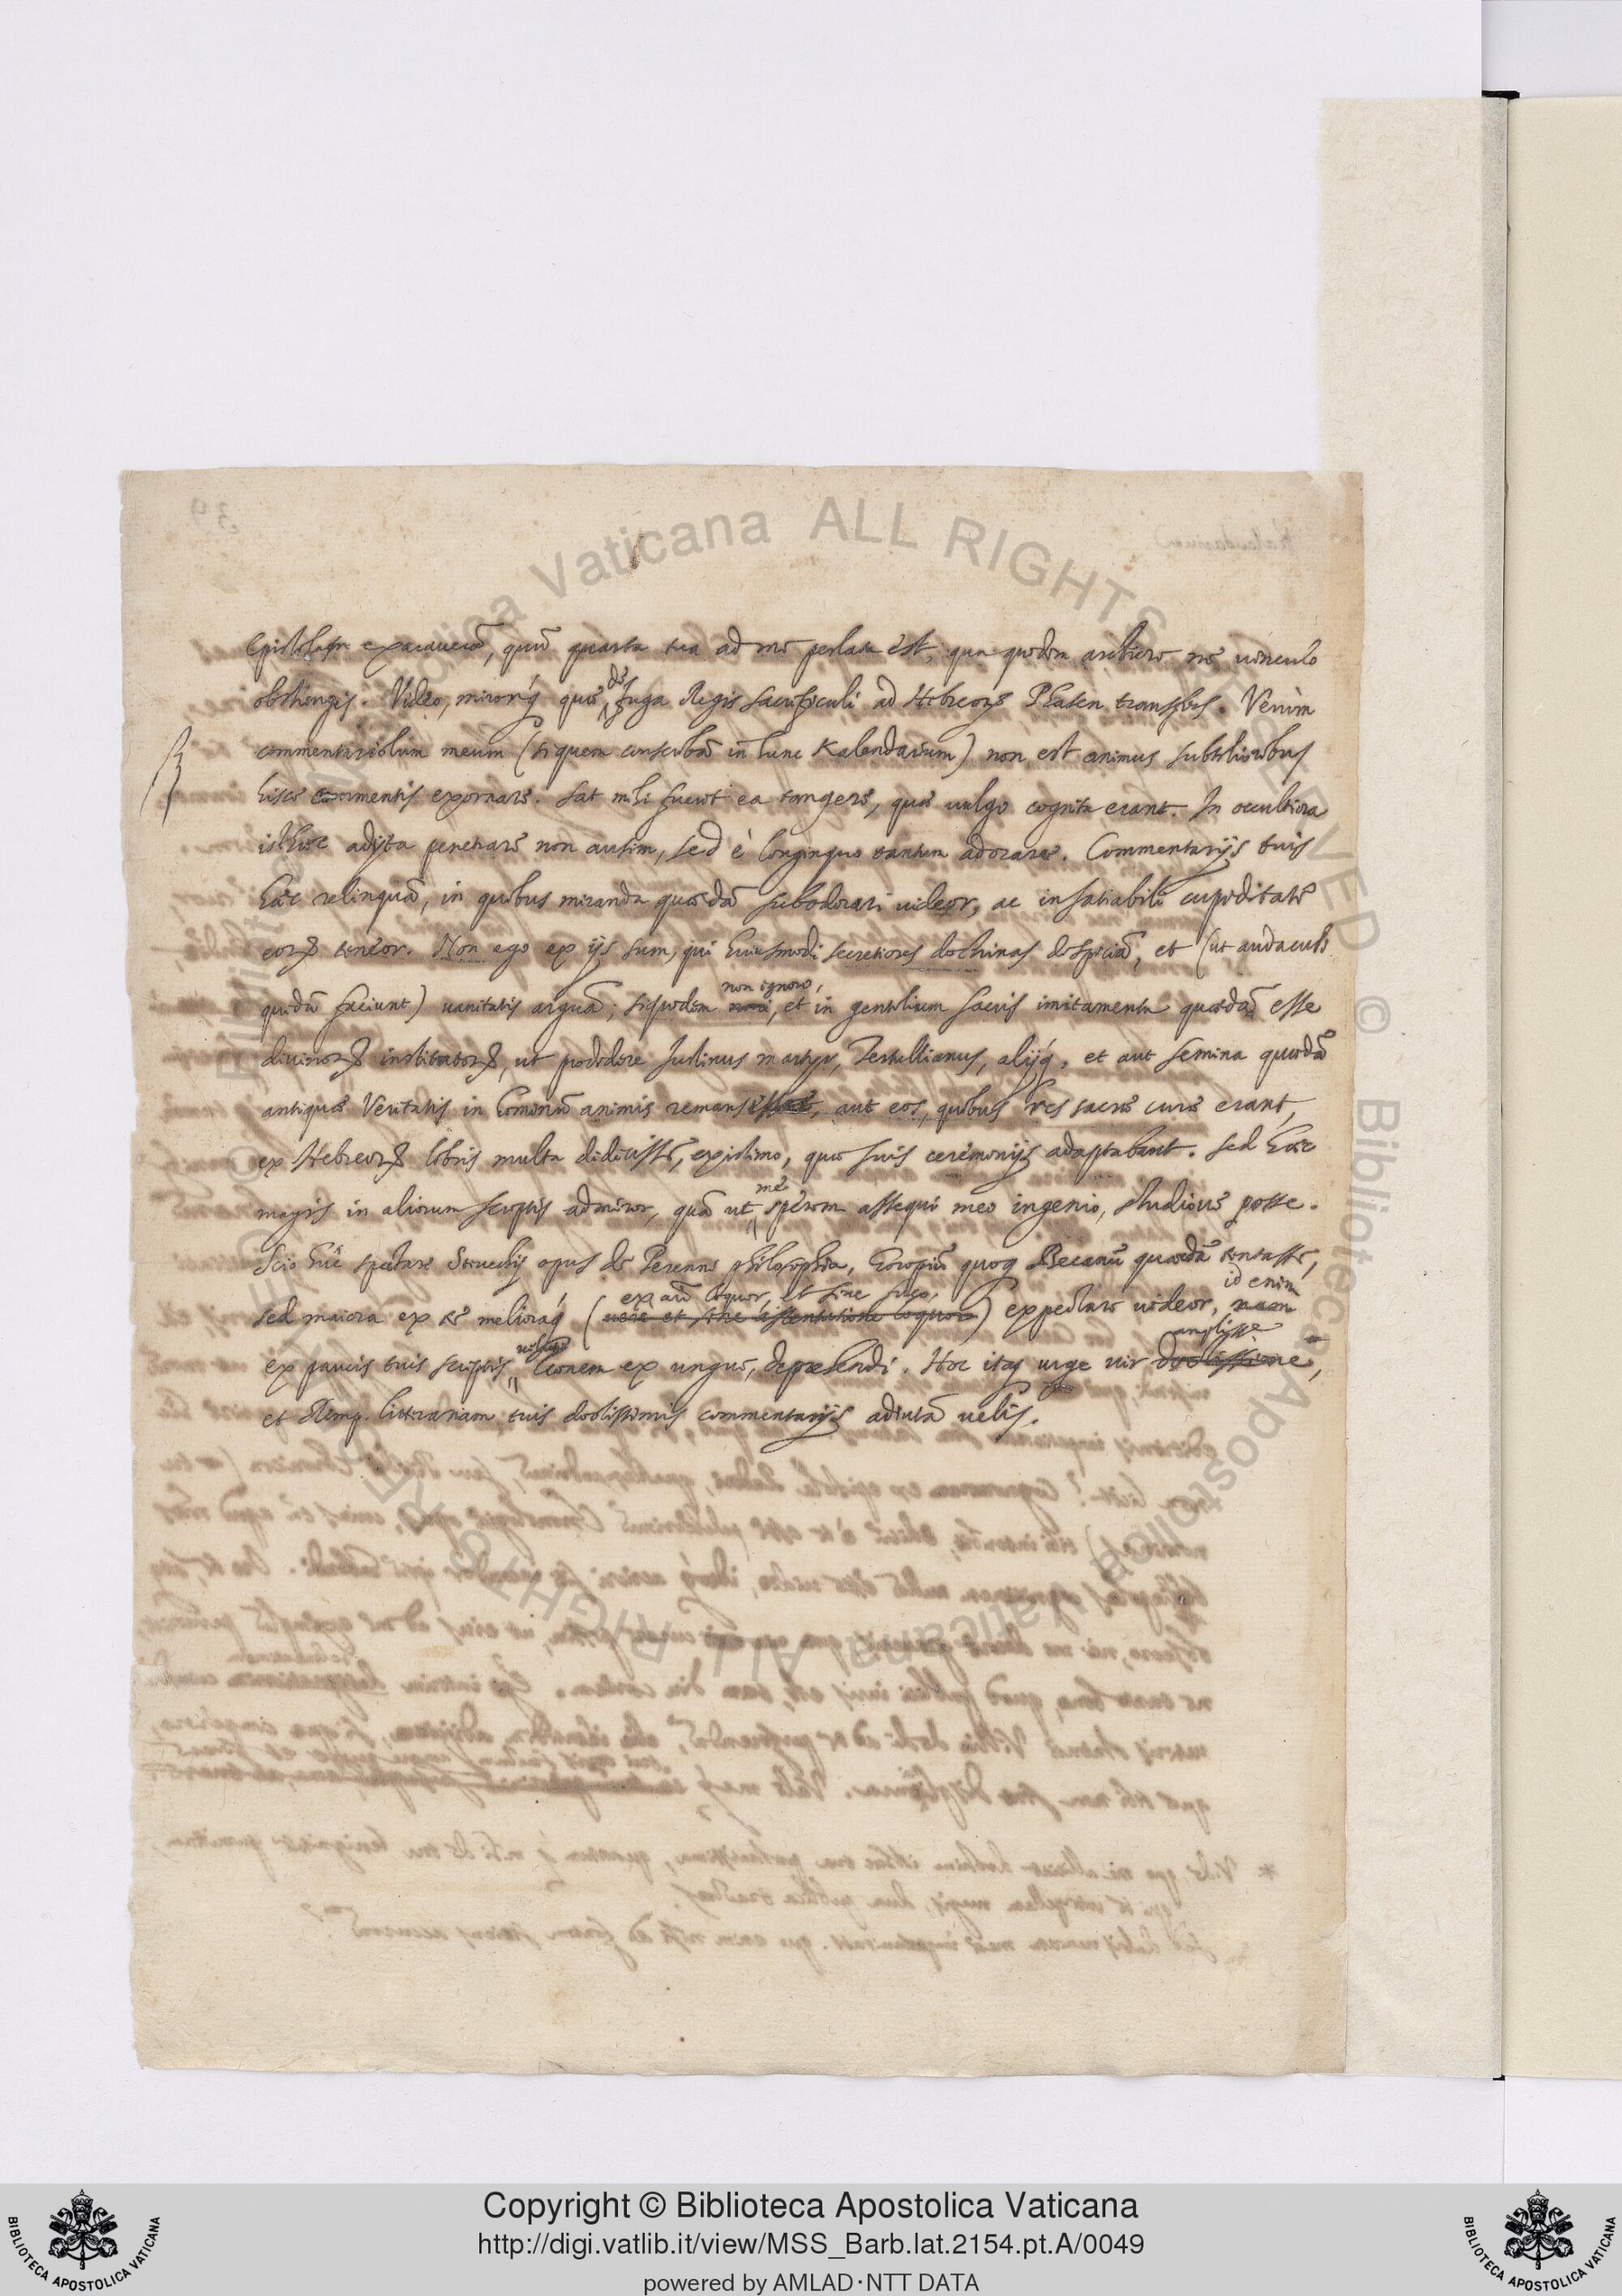 Epistolam exaraveram, quũ quarta tua ad me perlata est, qua quodam arctiore me vinculo
obstringis. Video, mirorq́ quae de fuga Regis sacrificuli ad Hebreorũ Phasen transfers. Verùm
commentariolum meum (si quem conscribã in hunc Kalendarium) non est animus subtilioribus
hisce commentis exornare. Sat mihi fuerit ea tangere, quae vulgo cognita erant. In occultiora
isthaec adyta penetrare non ausim, sed è longinquo tantum adorare. Commentarijs tuis
haec relinquã, in quibus miranda quaedã subodorari videor, ac insatiabili cupiditate
eorũ teneor. Non ego ex ijs sum, qui huiusmodi secretiores doctrinas despiciã, et (ut audaculi
quidã faciunt) vanitatis arguã; siquidem non ignoro, et in gentilium sacris imitamenta quaedã esse
divinorũ institutorũ, ut prodidere Justinus martyr, Tertullianus, alijq́, et aut semina quaedã
antiquae Veritatis in hominũ animis remansisse, aut eos, quibus res sacrae curae erant,
ex Hebreorũ libris multa didicisse, existimo, quae suis ceremonijs adaptabant. Sed haec
magis in aliorum scriptis admiror, quã ut me sperem assequi meo ingenio, studiove posse.
Scio huc spectare Steuchij opus de Perenni philosophia, Goropiũ quoq Becanũ quaedã tentasse,
sed maiora ex te melioraq́ (ex aīo loquor, et sine fuco,) expectare videor, id enim
ex paucis tuis scriptis, leonem ex ungue, deprehendi. Hoc itaq urge vir amplissime,
et Remp. litterariam tuis doctissimis commentarijs adiutã velis.
Copyright © Biblioteca Apostolica Vaticana
http://digi.vatlib.it/view/MSS_Barb.lat.2154.pt.A/0049
powered by AMLAD·NTT DATA
BIBLIOTECA APOSTOLICA VATICANA
BIBLIOTECA APOSTOLICA VATICANA